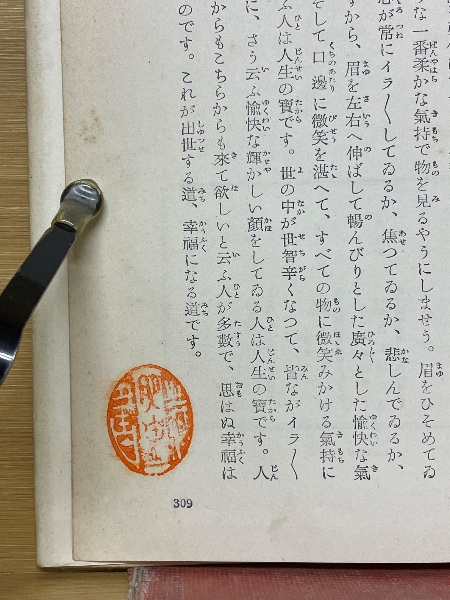 うな一番柔かな氣持で物を見るやうにしませう。眉をひそめてゐ
が常にイラ〱してゐるか、焦つてゐるか、悲しんでゐるか、
すから、眉を左右へ伸ばして暢んびりとした廣々とした愉快な氣
そして口邊に微笑を湛へて、すべての物に微笑みかける氣持に
ふ人は人生の寶です。世の中が世智辛くなつて、皆ながイラ〱
に、さう云ふ愉快な輝かしい顏をしてゐる人は人生の寶です。人
からもこちらからも來て欲しいと云ふ人が多數で、思はぬ幸福は
のです。これが出世する道、幸福になる道です。
309